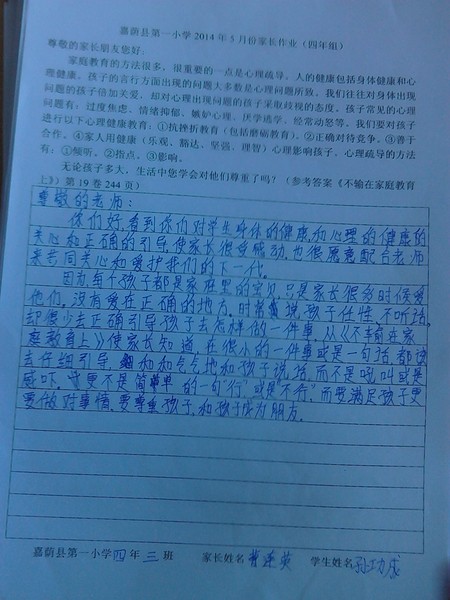 嘉荫县第一小学 2014 年 5 月份家长作业（四年组）
尊敬的家长朋友您好：
家庭教育的方法很多，很重要的一点是心理疏导。人的健康包括身体健康和心
理健康。孩子的言行方面出现的问题大多数是心理问题所致。我们往往对身体出现
问题的孩子倍加关爱，却对心理出现问题的孩子采取歧视的态度。孩子常见的心理
问题有：过度焦虑、情绪抑郁、嫉妒心理、厌学逃学、经常动怒等。我们要对孩子
进行以下心理健康教育：①抗挫折教育（包括磨砺教育）。②正确对待竞争。③善于
合作。④家人用健康（乐观、豁达、坚强、理智）心理影响孩子。心理疏导的方法
有：①倾听。②指点。③影响。
无论孩子多大，生活中您学会对他们尊重了吗？（参考答案《不输在家庭教育
上》）第 19 卷 244 页）
尊敬的老师：
你们好，看到你们对学生身体的健康和心理的健康的
关心和正确的引导，使家长很受感动，也很愿意配合老师
来共同关心和爱护我们的下一代。
因为每个孩子都是家庭里的宝贝，只是家长很多时候爱
他们，没有爱在正确的地方，时常说孩子任性，不听话，
却很少去正确引导孩子去怎样做一件事，从《不输在家
庭教育上》使家长知道，在很小的一件事或是一句话，都该
去仔细引导，和和气气地和孩子说话，而不是吼叫或是
威吓，更不是简单的一句"行"或是"不行"，而要满足孩子更
要做对事情，要尊重孩子，和孩子成为朋友。
嘉荫县第一小学四年三班 家长姓名 曹莲英 学生姓名 孙功成